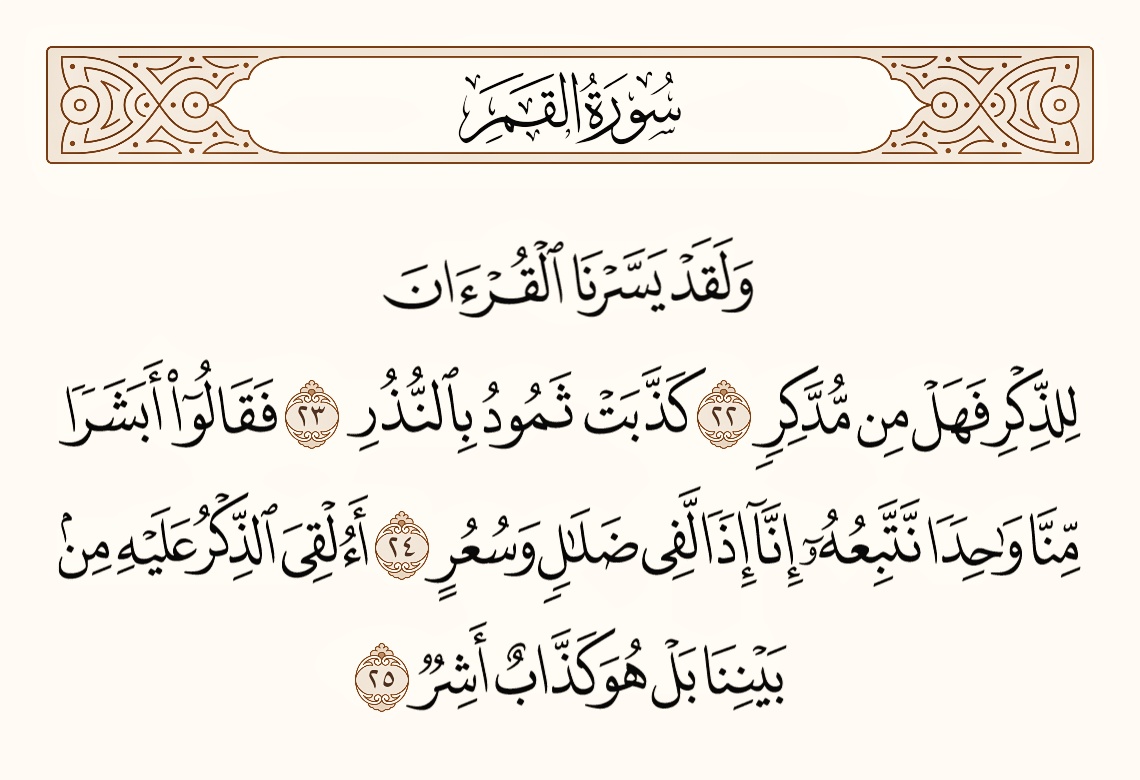 سُورَةُ القَمَرِ
وَلَقَدْ يَسَّرْنَا ٱلْقُرْءَانَ
لِلذِّكْرِ فَهَلْ مِن مُّدَّكِرٍ ٢٢ كَذَّبَتْ ثَمُودُ بِٱلنُّذُرِ ٢٣ فَقَالُوٓا۟ أَبَشَرًا
مِّنَّا وَٰحِدًا نَّتَّبِعُهُۥٓ إِنَّآ إِذًا لَّفِى ضَلَٰلٍ وَسُعُرٍ ٢٤ أَءُلْقِىَ ٱلذِّكْرُ عَلَيْهِ مِنۢ
بَيْنِنَا بَلْ هُوَ كَذَّابٌ أَشِرٌ ٢٥